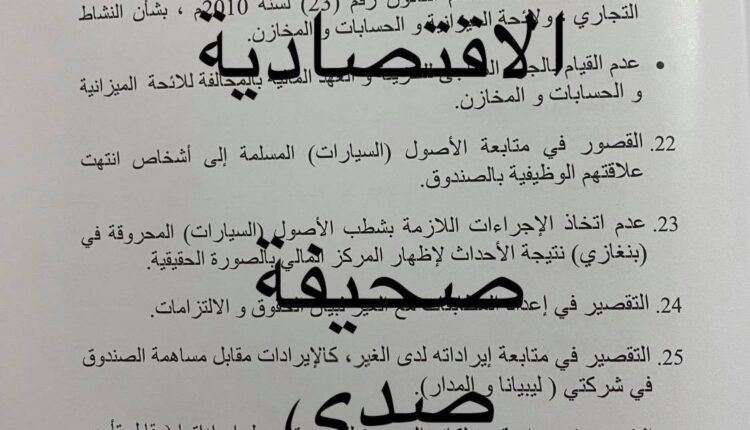 التجاري ، ولائحة الميزانية و الحسابات و المخازن.
القانون رقم (23) لسنة 2010م ، بشأن النشاط
الاقتصادية
عدم القيام بالجرد
و العهد المالية بالمخالفة للائحة الميزانية
و الحسابات و المخازن.
22. القصور في متابعة الأصول (السيارات) المسلمة إلى أشخاص انتهت
علاقتهم الوظيفية بالصندوق.
23. عدم اتخاذ الإجراءات اللازمة بشطب الأصول (السيارات) المحروقة في
(بنغازي) نتيجة الأحداث لإظهار المركز المالي بالصورة الحقيقية.
صحيفة
24. التقصير في إعداد المطابقات مع الغير لبيان الحقوق و الالتزامات.
25. التقصير في متابعة إيراداته لدى الغير، كالإيرادات مقابل مساهمة الصندوق
في شركتي ( ليبيانا و المدار).
صدى